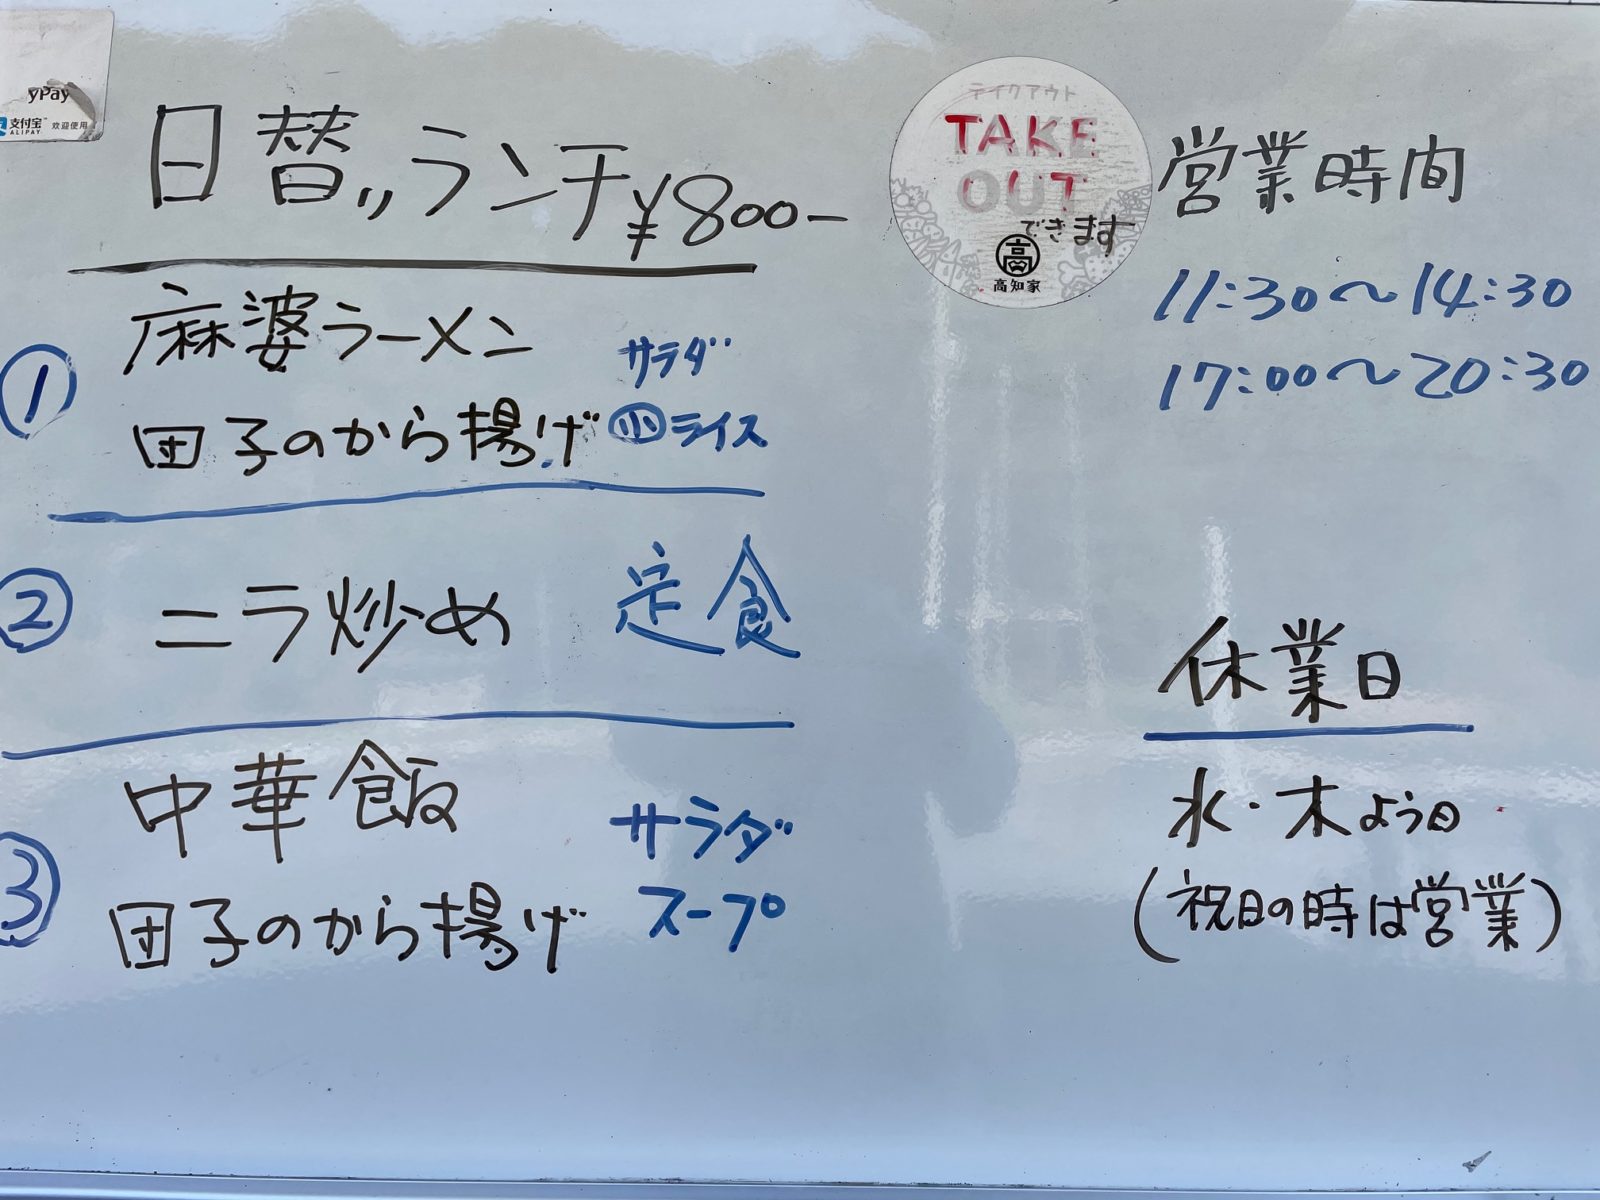 yPay
支付宝 欢迎使用
ALIPAY
日替りランチ ¥800-
① 麻婆ラーメン サラダ
団子のから揚げ ㊙ライス
② ニラ炒め 定食
③ 中華飯 サラダ
団子のから揚げ スープ
テイクアウト
TAKE
OUT
できます
高
高知家
営業時間
11:30〜14:30
17:00〜20:30
休業日
水・木よう日
(祝日の時は営業)